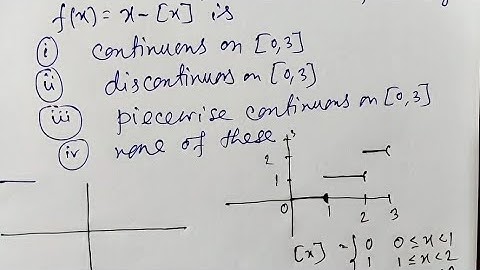 f(x) = x - [x] is
i continuous on [0,3]
ii discontinuous on [0,3]
iii piecewise continuous on [0,3]
iv none of these
3
2
1
0 1 2 3
[x] = { 0 0 ≤ x < 1
1 1 ≤ x < 2